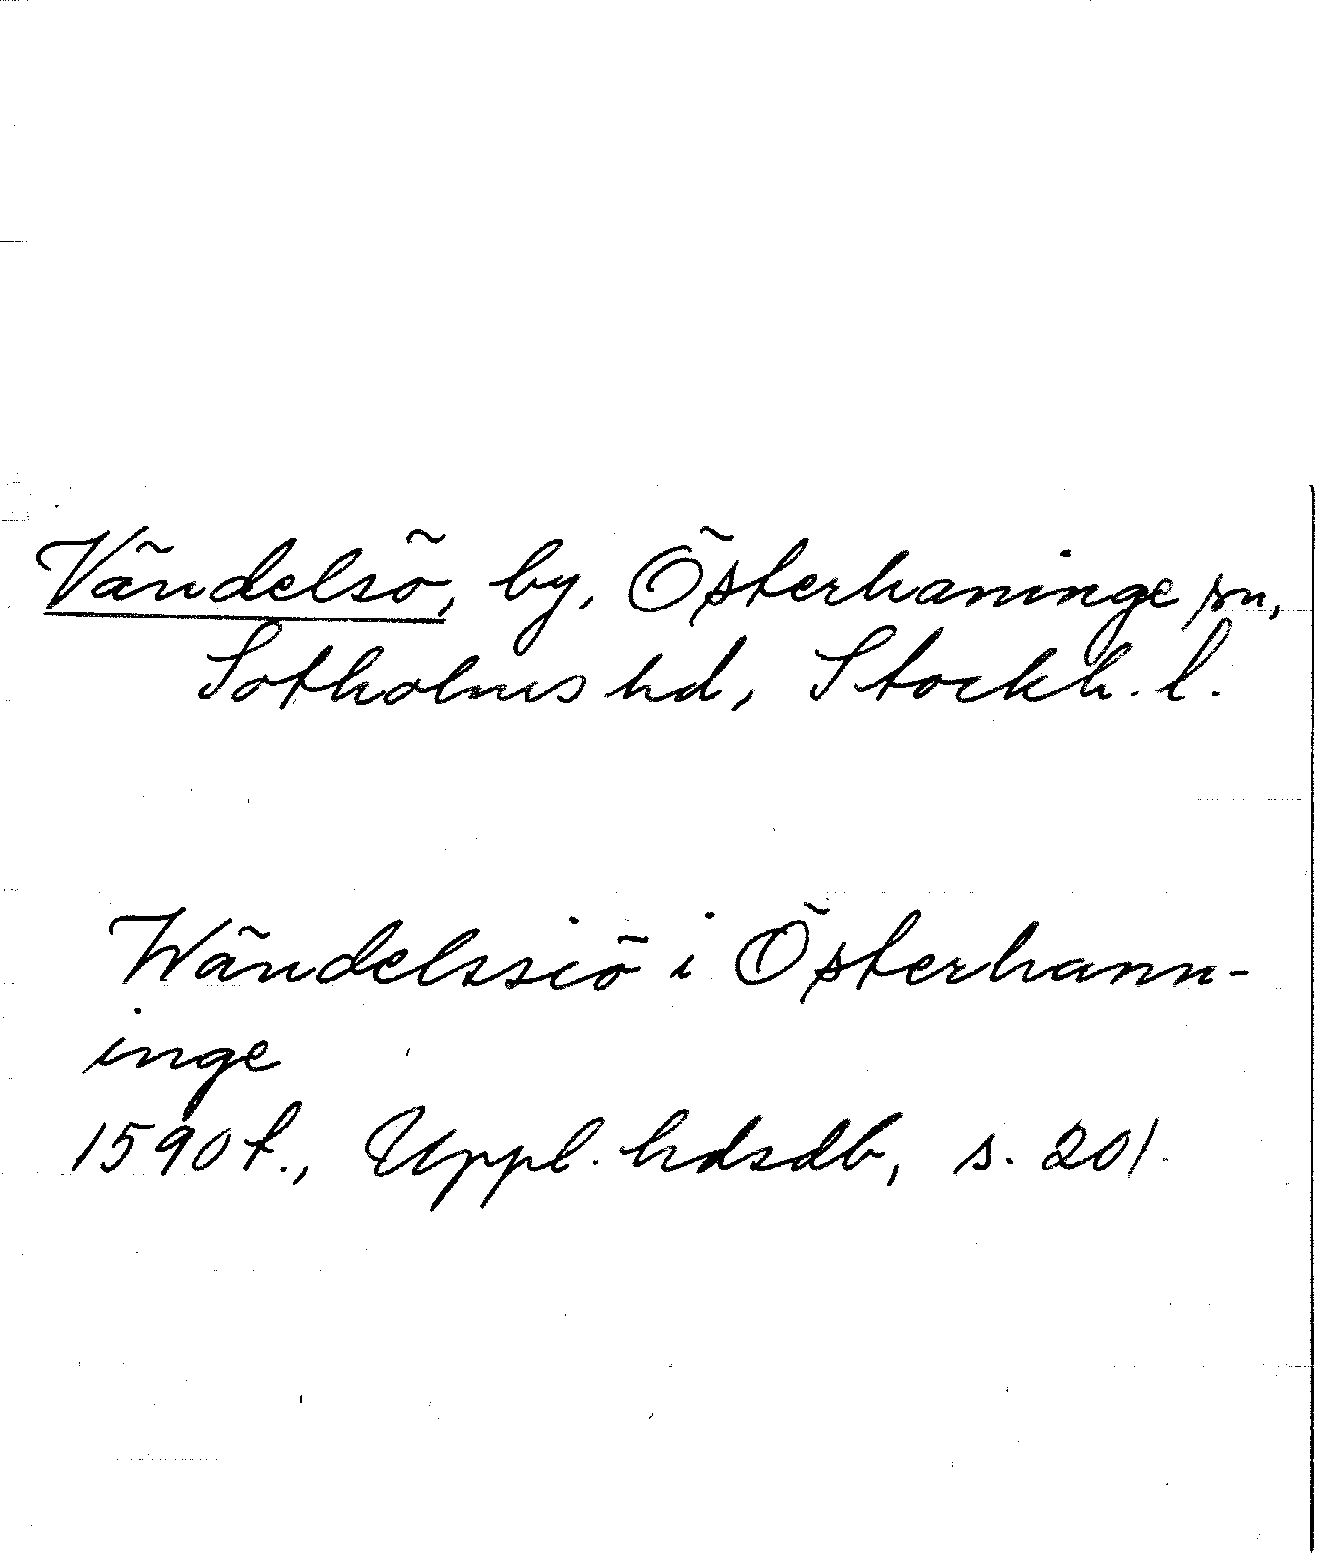 Vändelsö, by, Österhaninge sn,
Sotholms hd, Stockh. l.
Wändelssiö i Österhann-
inge
1590 t., Uppl. hdsdb, s. 201.